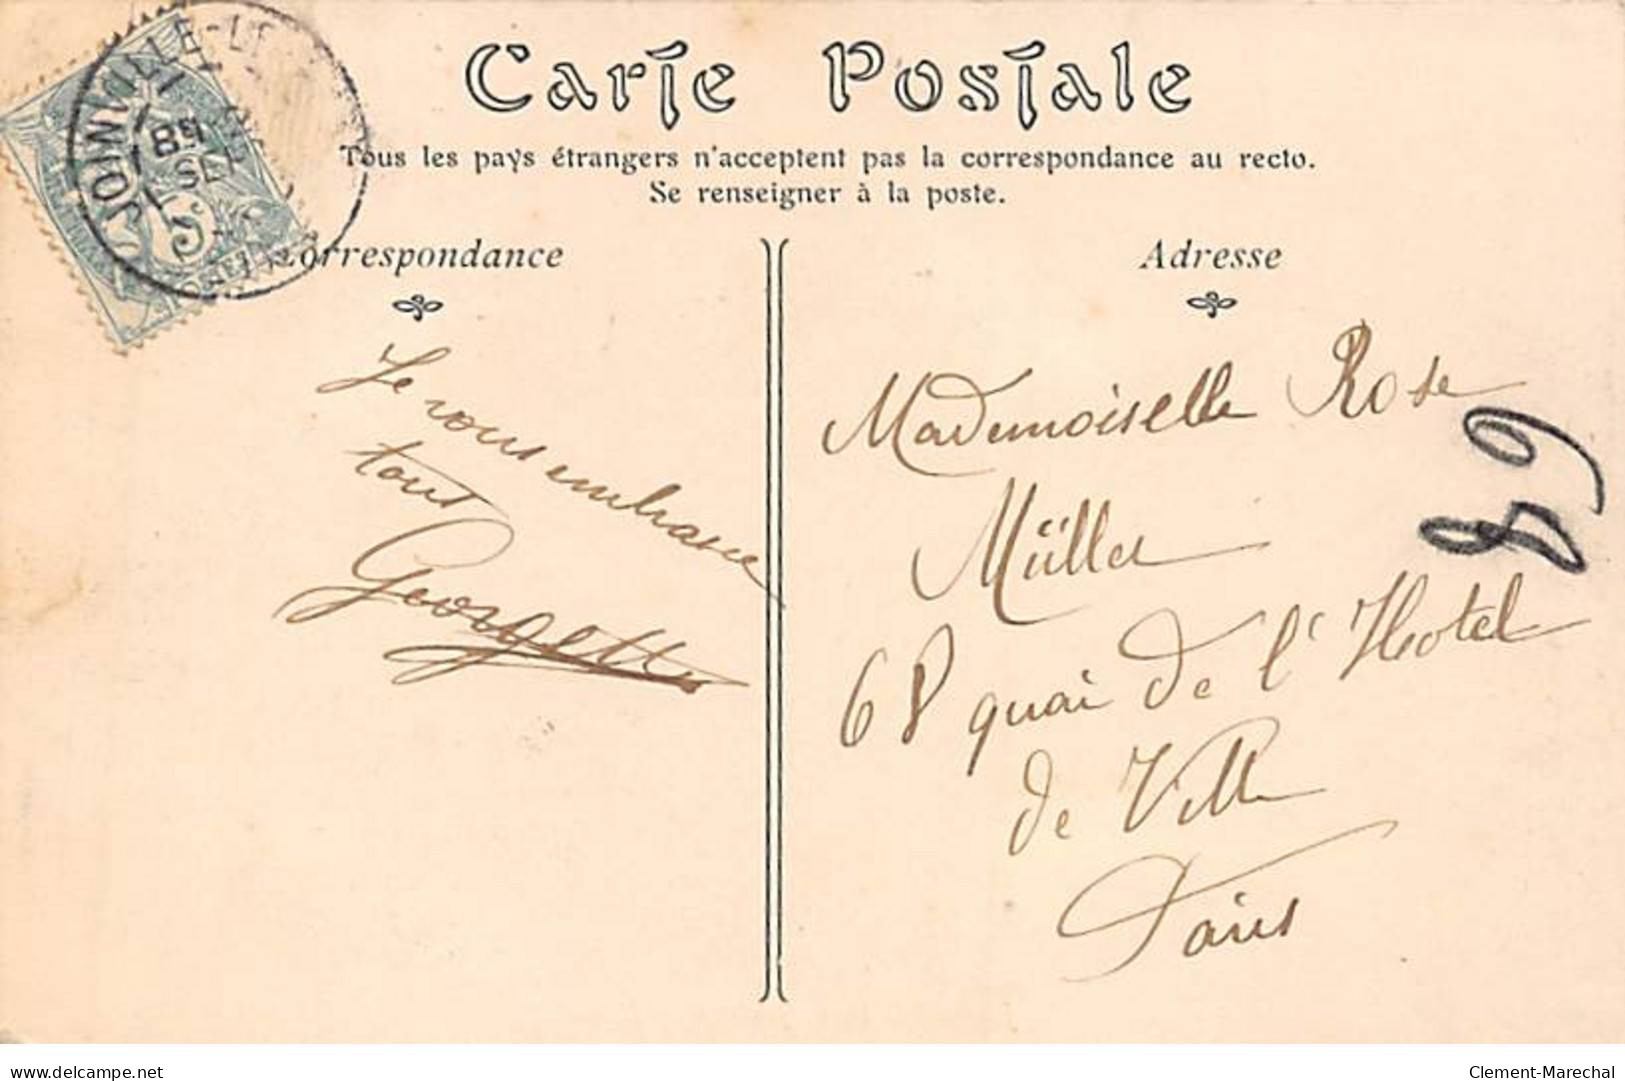 Carte Postale
Tous les pays étrangers n'acceptent pas la correspondance au recto.
Se renseigner à la poste.
JOINVILLE-LE
5
Correspondance
Je vous embrasse
tout
Georgette
Adresse
Mademoiselle Rose
Müller
68 quai de l'Hotel
de Ville
Paris
89
delcampe.net
Clement-Marechal